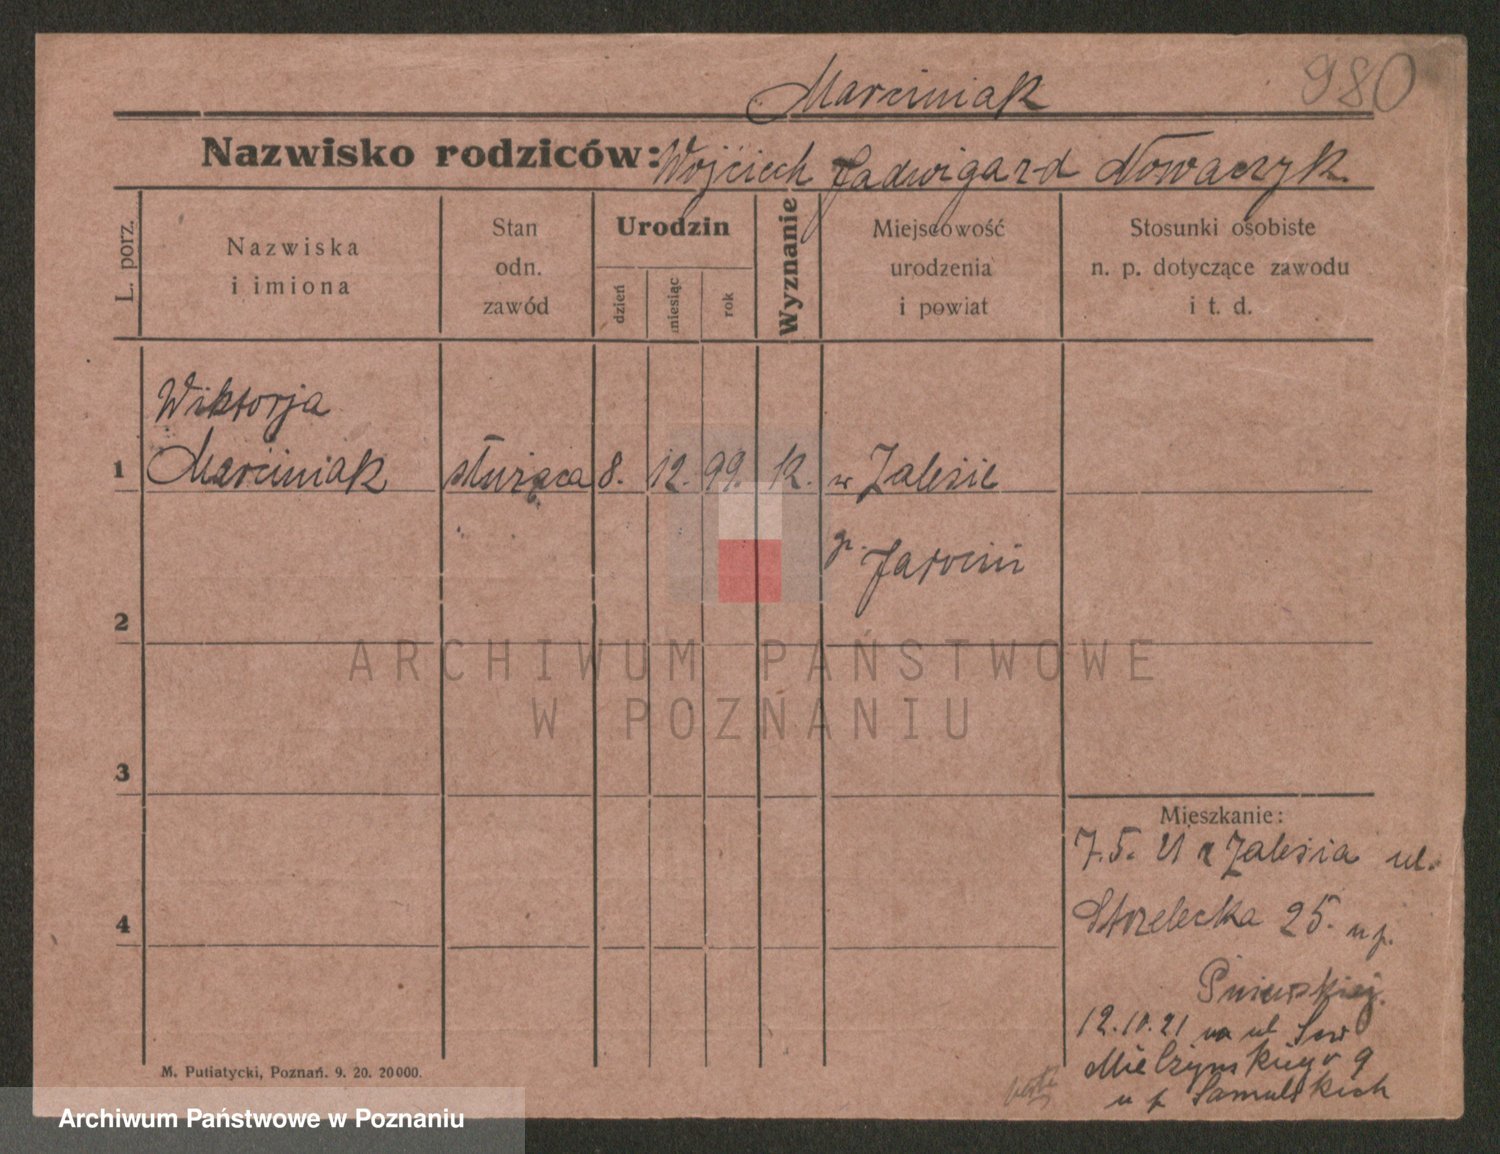 Marciniak 980
Nazwisko rodziców: Wojciech Jadwiga z d Nowaczyk
L. porz.
Nazwiska
i imiona
Stan
odn.
zawód
Urodzin
dzień
miesiąc
rok
Wyznanie
Miejscowość
urodzenia
i powiat
Stosunki osobiste
n. p. dotyczące zawodu
i t. d.
Wiktorja
1 Marciniak służąca 8. 12. 99. k. w Zalesie
p. Jarocin
2
ARCHIWUM PAŃSTWOWE
W POZNANIU
3
Mieszkanie:
7.5. 21 z Zalesia ul.
Strzelecka 25. u p.
4
Pniewskiej.
12.10.21 na ul Sew
Mielżyńskiego 9
u p Samulskich
M. Putiatycki, Poznań. 9. 20. 20000.
Archiwum Państwowe w Poznaniu